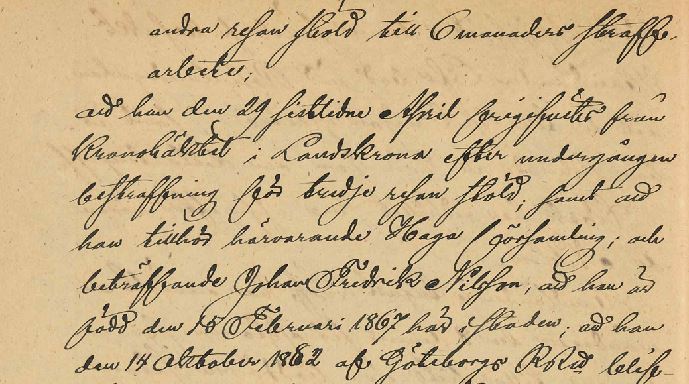 andra resan stöld till 6 månaders straff-
arbete;
att han den 29 sistlidne April frigifvits från
Kronohäktet i Landskrona efter undergången
bestraffning för tredje resan stöld, samt att
han tillhör härvarande Haga församling; och
beträffande Johan Fredrik Nilsson, att han är
född den 18 Februari 1867 här i staden; att han
den 14 Oktober 1882 af Göteborgs RådRtt blif-